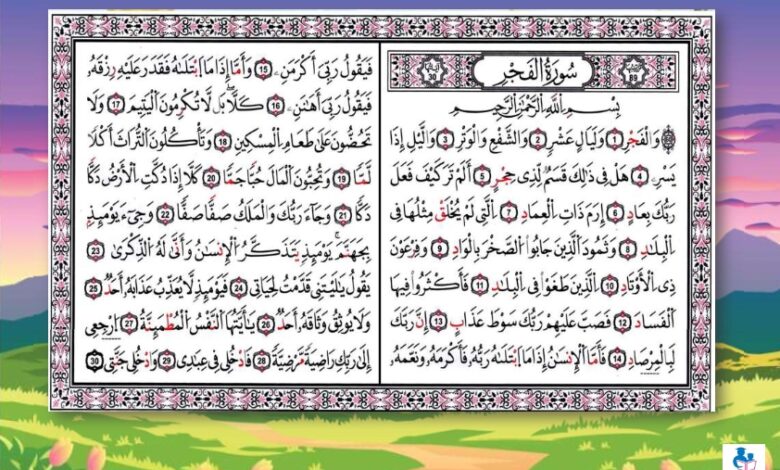 سُورَةُ الْفَجْرِ
89
30
بِسْمِ اللَّهِ الرَّحْمَٰنِ الرَّحِيمِ
وَالْفَجْرِ 1 وَلَيَالٍ عَشْرٍ 2 وَالشَّفْعِ وَالْوَتْرِ 3 وَالَّيْلِ إِذَا
يَسْرِۦ 4 هَلْ فِي ذَٰلِكَ قَسَمٌ لِّذِي حِجْرٍ 5 أَلَمْ تَرَ كَيْفَ فَعَلَ
رَبُّكَ بِعَادٍ 6 إِرَمَ ذَاتِ الْعِمَادِ 7 الَّتِي لَمْ يُخْلَقْ مِثْلُهَا فِي
الْبِلَٰدِ 8 وَثَمُودَ الَّذِينَ جَابُوا الصَّخْرَ بِالْوَادِۦ 9 وَفِرْعَوْنَ
ذِي الْأَوْتَادِ 10 الَّذِينَ طَغَوْا فِي الْبِلَٰدِ 11 فَأَكْثَرُوا فِيهَا
الْفَسَادَ 12 فَصَبَّ عَلَيْهِمْ رَبُّكَ سَوْطَ عَذَابٍ 13 إِنَّ رَبَّكَ
لَبِالْمِرْصَادِ 14 فَأَمَّا الْإِنسَٰنُ إِذَا مَا ابْتَلَىٰهُ رَبُّهُۥ فَأَكْرَمَهُۥ وَنَعَّمَهُۥ
فَيَقُولُ رَبِّي أَكْرَمَنِۦ 15 وَأَمَّا إِذَا مَا ابْتَلَىٰهُ فَقَدَرَ عَلَيْهِ رِزْقَهُۥ
فَيَقُولُ رَبِّي أَهَٰنَنِۦ 16 كَلَّا بَل لَّا تُكْرِمُونَ الْيَتِيمَ 17 وَلَا
تَحُضُّونَ عَلَىٰ طَعَامِ الْمِسْكِينِ 18 وَتَأْكُلُونَ التُّرَاثَ أَكْلًا
لَّمًّا 19 وَتُحِبُّونَ الْمَالَ حُبًّا جَمًّا 20 كَلَّا إِذَا دُكَّتِ الْأَرْضُ دَكًّا
دَكًّا 21 وَجَاءَ رَبُّكَ وَالْمَلَكُ صَفًّا صَفًّا 22 وَجِيءَ يَوْمَئِذٍ
بِجَهَنَّمَ يَوْمَئِذٍ يَتَذَكَّرُ الْإِنسَٰنُ وَأَنَّىٰ لَهُ الذِّكْرَىٰ 23
يَقُولُ يَٰلَيْتَنِي قَدَّمْتُ لِحَيَاتِي 24 فَيَوْمَئِذٍ لَّا يُعَذِّبُ عَذَابَهُۥ أَحَدٌ 25
وَلَا يُوثِقُ وَثَاقَهُۥ أَحَدٌ 26 يَٰأَيَّتُهَا النَّفْسُ الْمُطْمَئِنَّةُ 27 ارْجِعِي
إِلَىٰ رَبِّكِ رَاضِيَةً مَّرْضِيَّةً 28 فَادْخُلِي فِي عِبَٰدِي 29 وَادْخُلِي جَنَّتِي 30